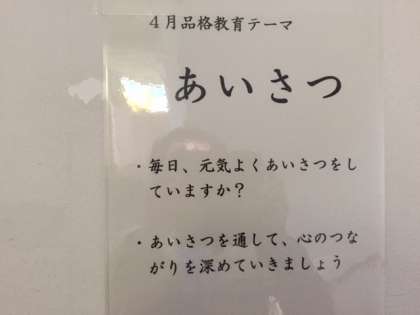 ４月品格教育テーマ
あいさつ
・毎日、元気よくあいさつをし
ていますか？
・あいさつを通して、心のつな
がりを深めていきましょう